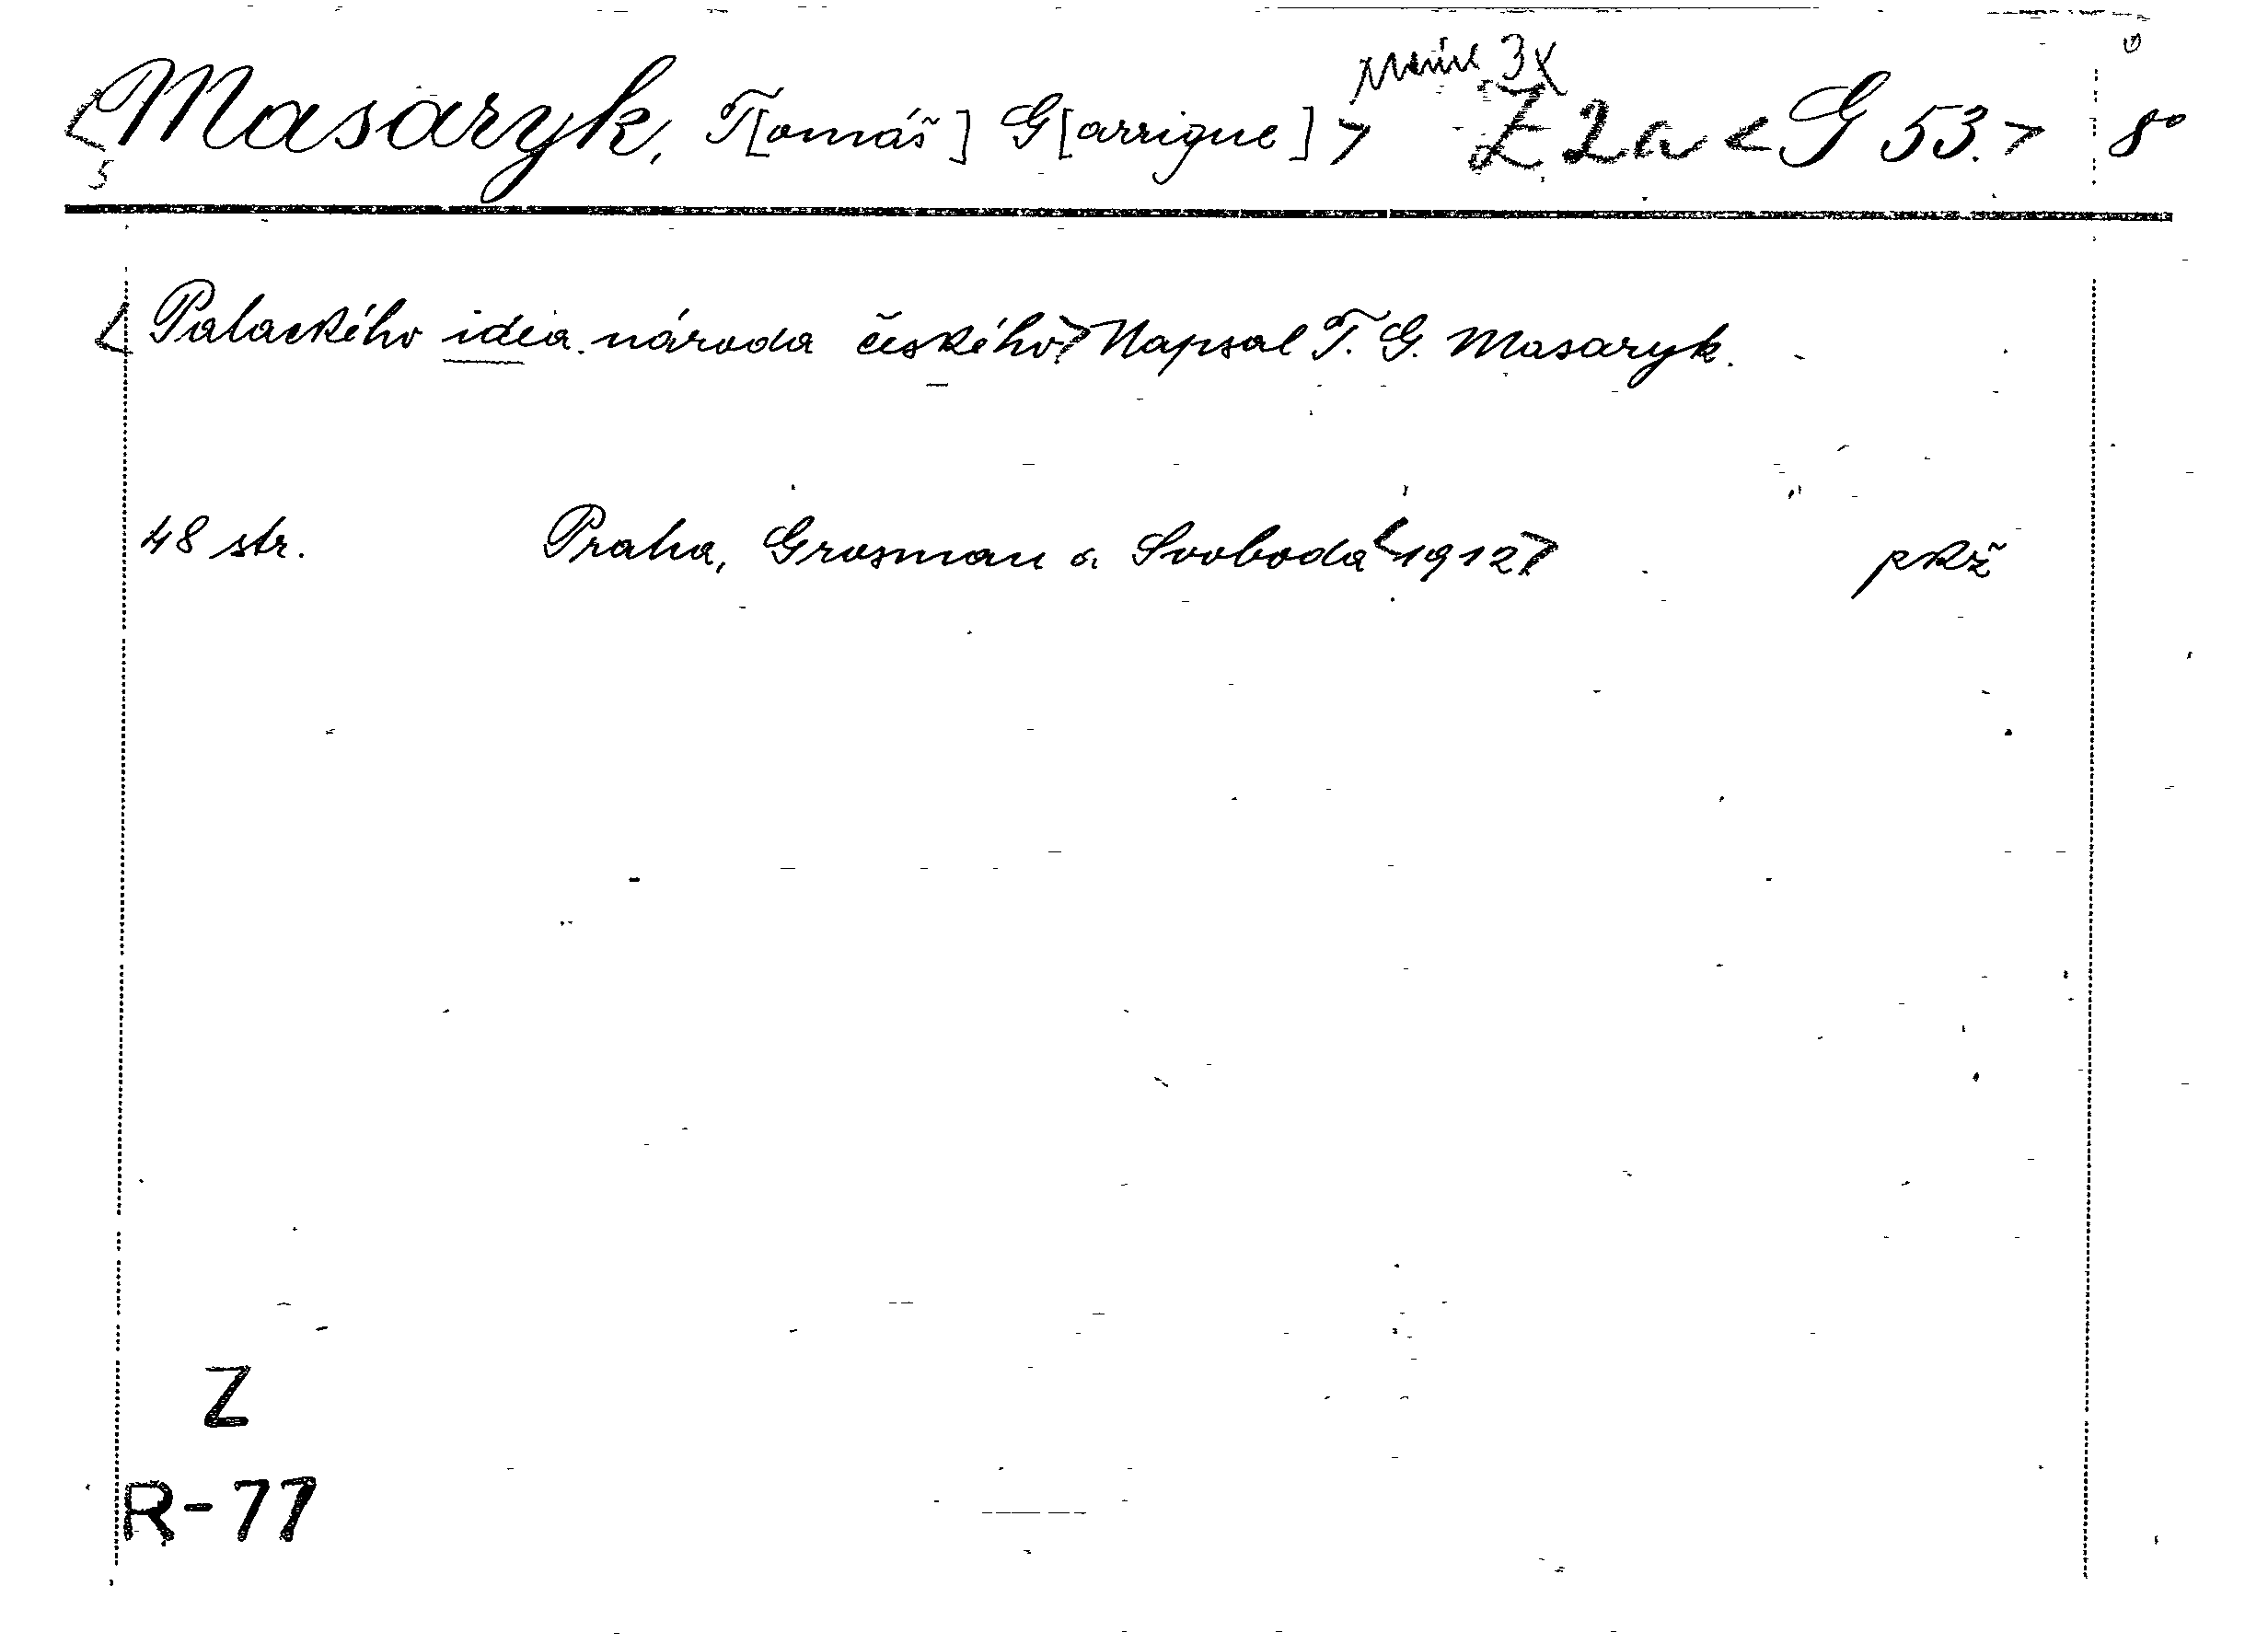 3x
<Masaryk, T[omáš] G[arrigue]> Z 2a <G 53.> 8°
5
<Palackého idea národa českého> Napsal T. G. Masaryk.
48 str. Praha, Grosman a Svoboda <1912> pkž
Z
R-77